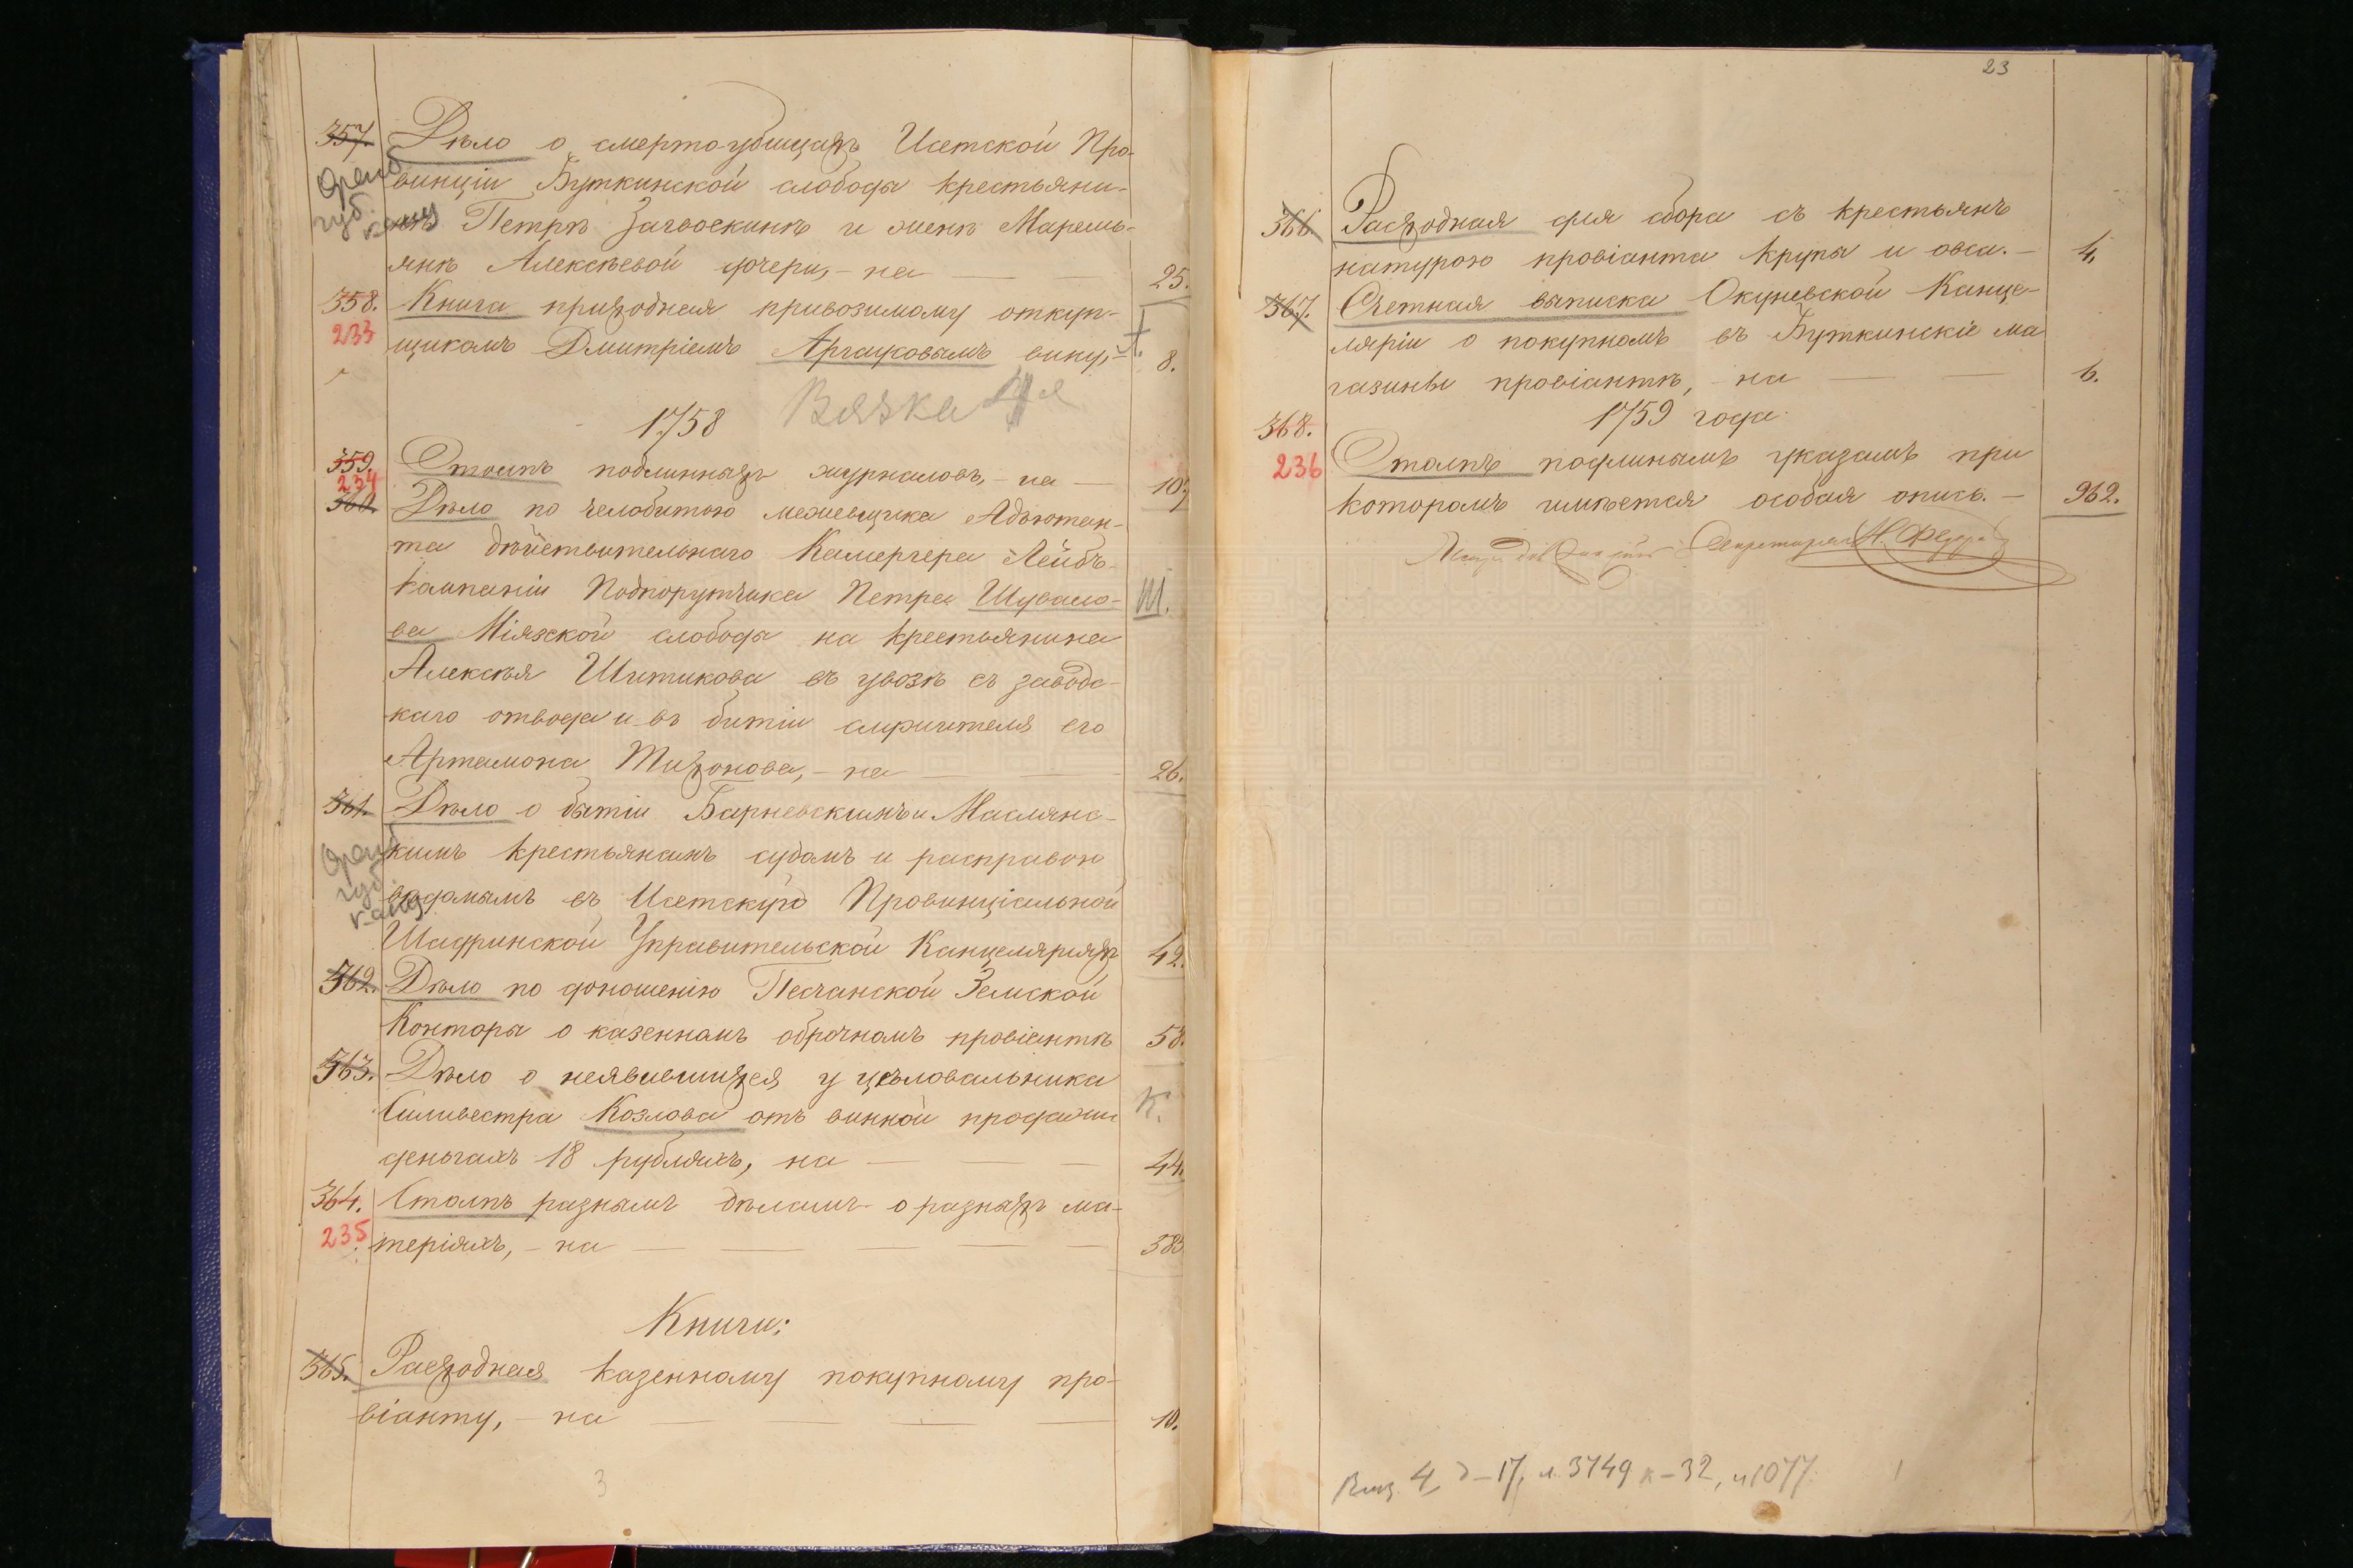 357. Дѣло о смертоубицахъ Исетской Про-
Оренб винціи Буткинской слободы крестьяни-
губ. канц нѣ Петрѣ Загвоскинѣ и женѣ Маремь-
янѣ Алексѣевой дочери, - на — 25.
358. Книга приходная привозимому откуп-
233 щикомъ Дмитріемъ Аргауковымъ вину, - 8.
1758 Вязка
359. Столпъ подлинныхъ журналовъ, - на — 10
234
360. Дѣло по челобитью межевщика Адъютан-
та дѣйствительнаго Камергера Лейбъ-
кампаніи Подпорутчика Петра Шувало- Ш.
ва Міязской слободы на крестьянина
Алексѣя Шитикова въ увозѣ съ заводс-
каго отвода и въ битіи служителя его
Артамона Тихонова, - на — 26.
361. Дѣло о бытіи Барневскимъ и Маслянс-
Оренб кимъ крестьянамъ судомъ и расправою
губ. ведомымъ въ Исетскую Провинціальной
канц Шадринской Управительской Канцеляріяхъ 42.
362. Дѣло по доношенію Песчанской Земской
Конторы о казенномъ оброчномъ провіантѣ 58.
363. Дѣло о неявившихся у цѣловальника
Силивестра Козлова отъ винной продажи К.
деньгахъ 18 рубляхъ, на — 44.
364. Столпъ разнымъ дѣламъ о разныхъ ма-
235 теріяхъ, - на — 383
Книги:
365. Расходная казенному покупному про-
віанту, - на — 10.
3
23
366. Расходная для сбора съ крестьянъ
натурою провіанта крупы и овса. — 4.
367. Счетная выписка Окуневской Канце-
ляріи о покупномъ въ Буткинскіе ма
газины провіантѣ, - на — 6.
1759 года.
368. Столпъ подлинымъ указамъ при
236 которомъ имѣется особая опись. — 962.
Секретарь Н. Федоров
4, д-17, л. 3749 к-32, л 1077